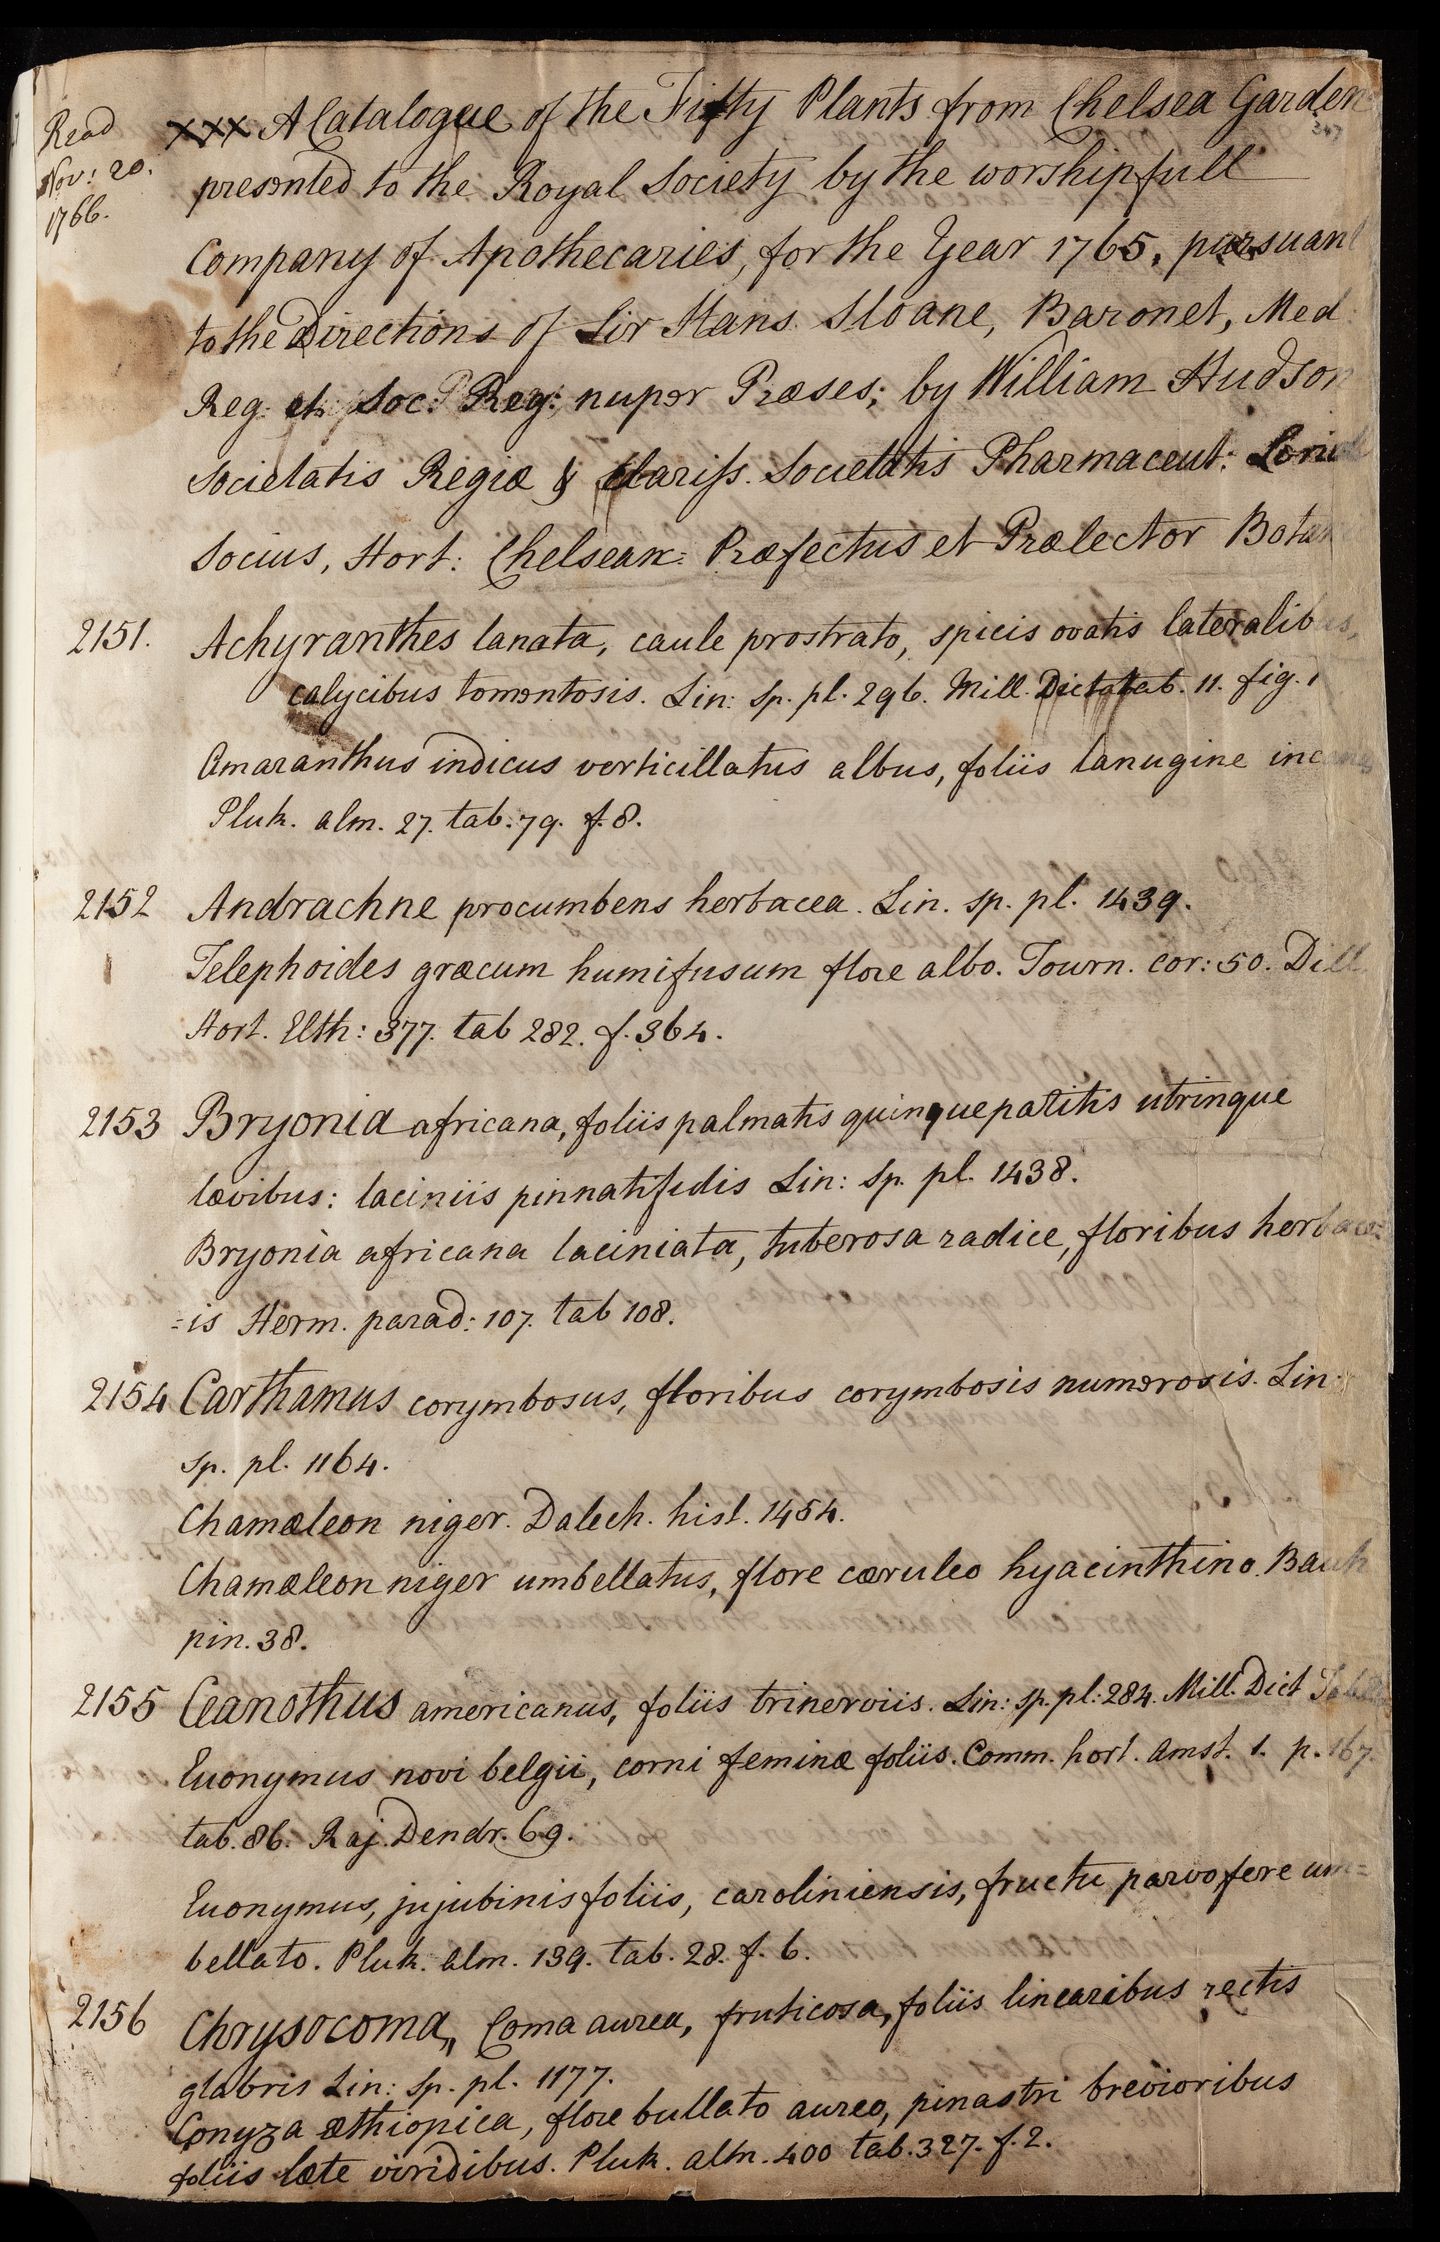 Read
Nov: 20.
1766.
xxx A Catalogue of the Fifty Plants from Chelsea Garden
247
presented to the Royal Society by the worshipfull
Company of Apothecaries, for the Year 1765, pursuant
to the Directions of Sir Hans Sloane, Baronet, Med:
Reg: et Soc: Reg: nuper Præses; by William Hudson
Societatis Regiæ & clariss. Societatis Pharmaceut: Lond
Socius, Hort: Chelsean: Præfectus et Prælector Botan
2151. Achyranthes lanata, caule prostrato, spicis ovatis lateralibus,
calycibus tomentosis. Lin: sp. pl. 296. Mill. Dict. tab. 11. fig. 1
Amaranthus indicus verticillatus albus, foliis lanugine incanis
Pluk. alm. 27. tab. 79. f. 8.
2152 Andrachne procumbens herbacea. Lin. sp. pl. 1439.
Telephoides græcum humifusum flore albo. Tourn. cor: 50. Dill
Hort. Elth: 377. tab 282. f. 364.
2153 Bryonia africana, foliis palmatis quinquepatitis utrinque
lævibus: laciniis pinnatifidis Lin: Sp. pl. 1438.
Bryonia africana laciniata, tuberosa radice, floribus herbace=
=is Herm. parad: 107. tab 108.
2154 Carthamus corymbosus, floribus corymbosis numerosis. Lin:
sp. pl. 1164.
Chamæleon niger. Dalech. hist. 1454.
Chamæleon niger umbellatus, flore cæruleo hyacinthino. Bauh
pin. 38.
2155 Ceanothus americanus, foliis trinerviis. Lin: sp. pl: 284. Mill. Dict
Euonymus novi belgii, corni feminæ foliis. Comm. hort. Amst. 1. p. 167.
tab. 86. Raj. Dendr. 69.
Euonymus, jujubinis foliis, caroliniensis, fructu parvo fere um=
bellato. Pluk. alm. 139. tab. 28. f. 6.
2156 Chrysocoma, Coma aurea, fruticosa, foliis linearibus rectis
glabris Lin: Sp. pl. 1177.
Conyza æthiopica, flore bullato aureo, pinastri brevioribus
foliis læte viridibus. Pluk. alm. 400 tab. 327. f. 2.